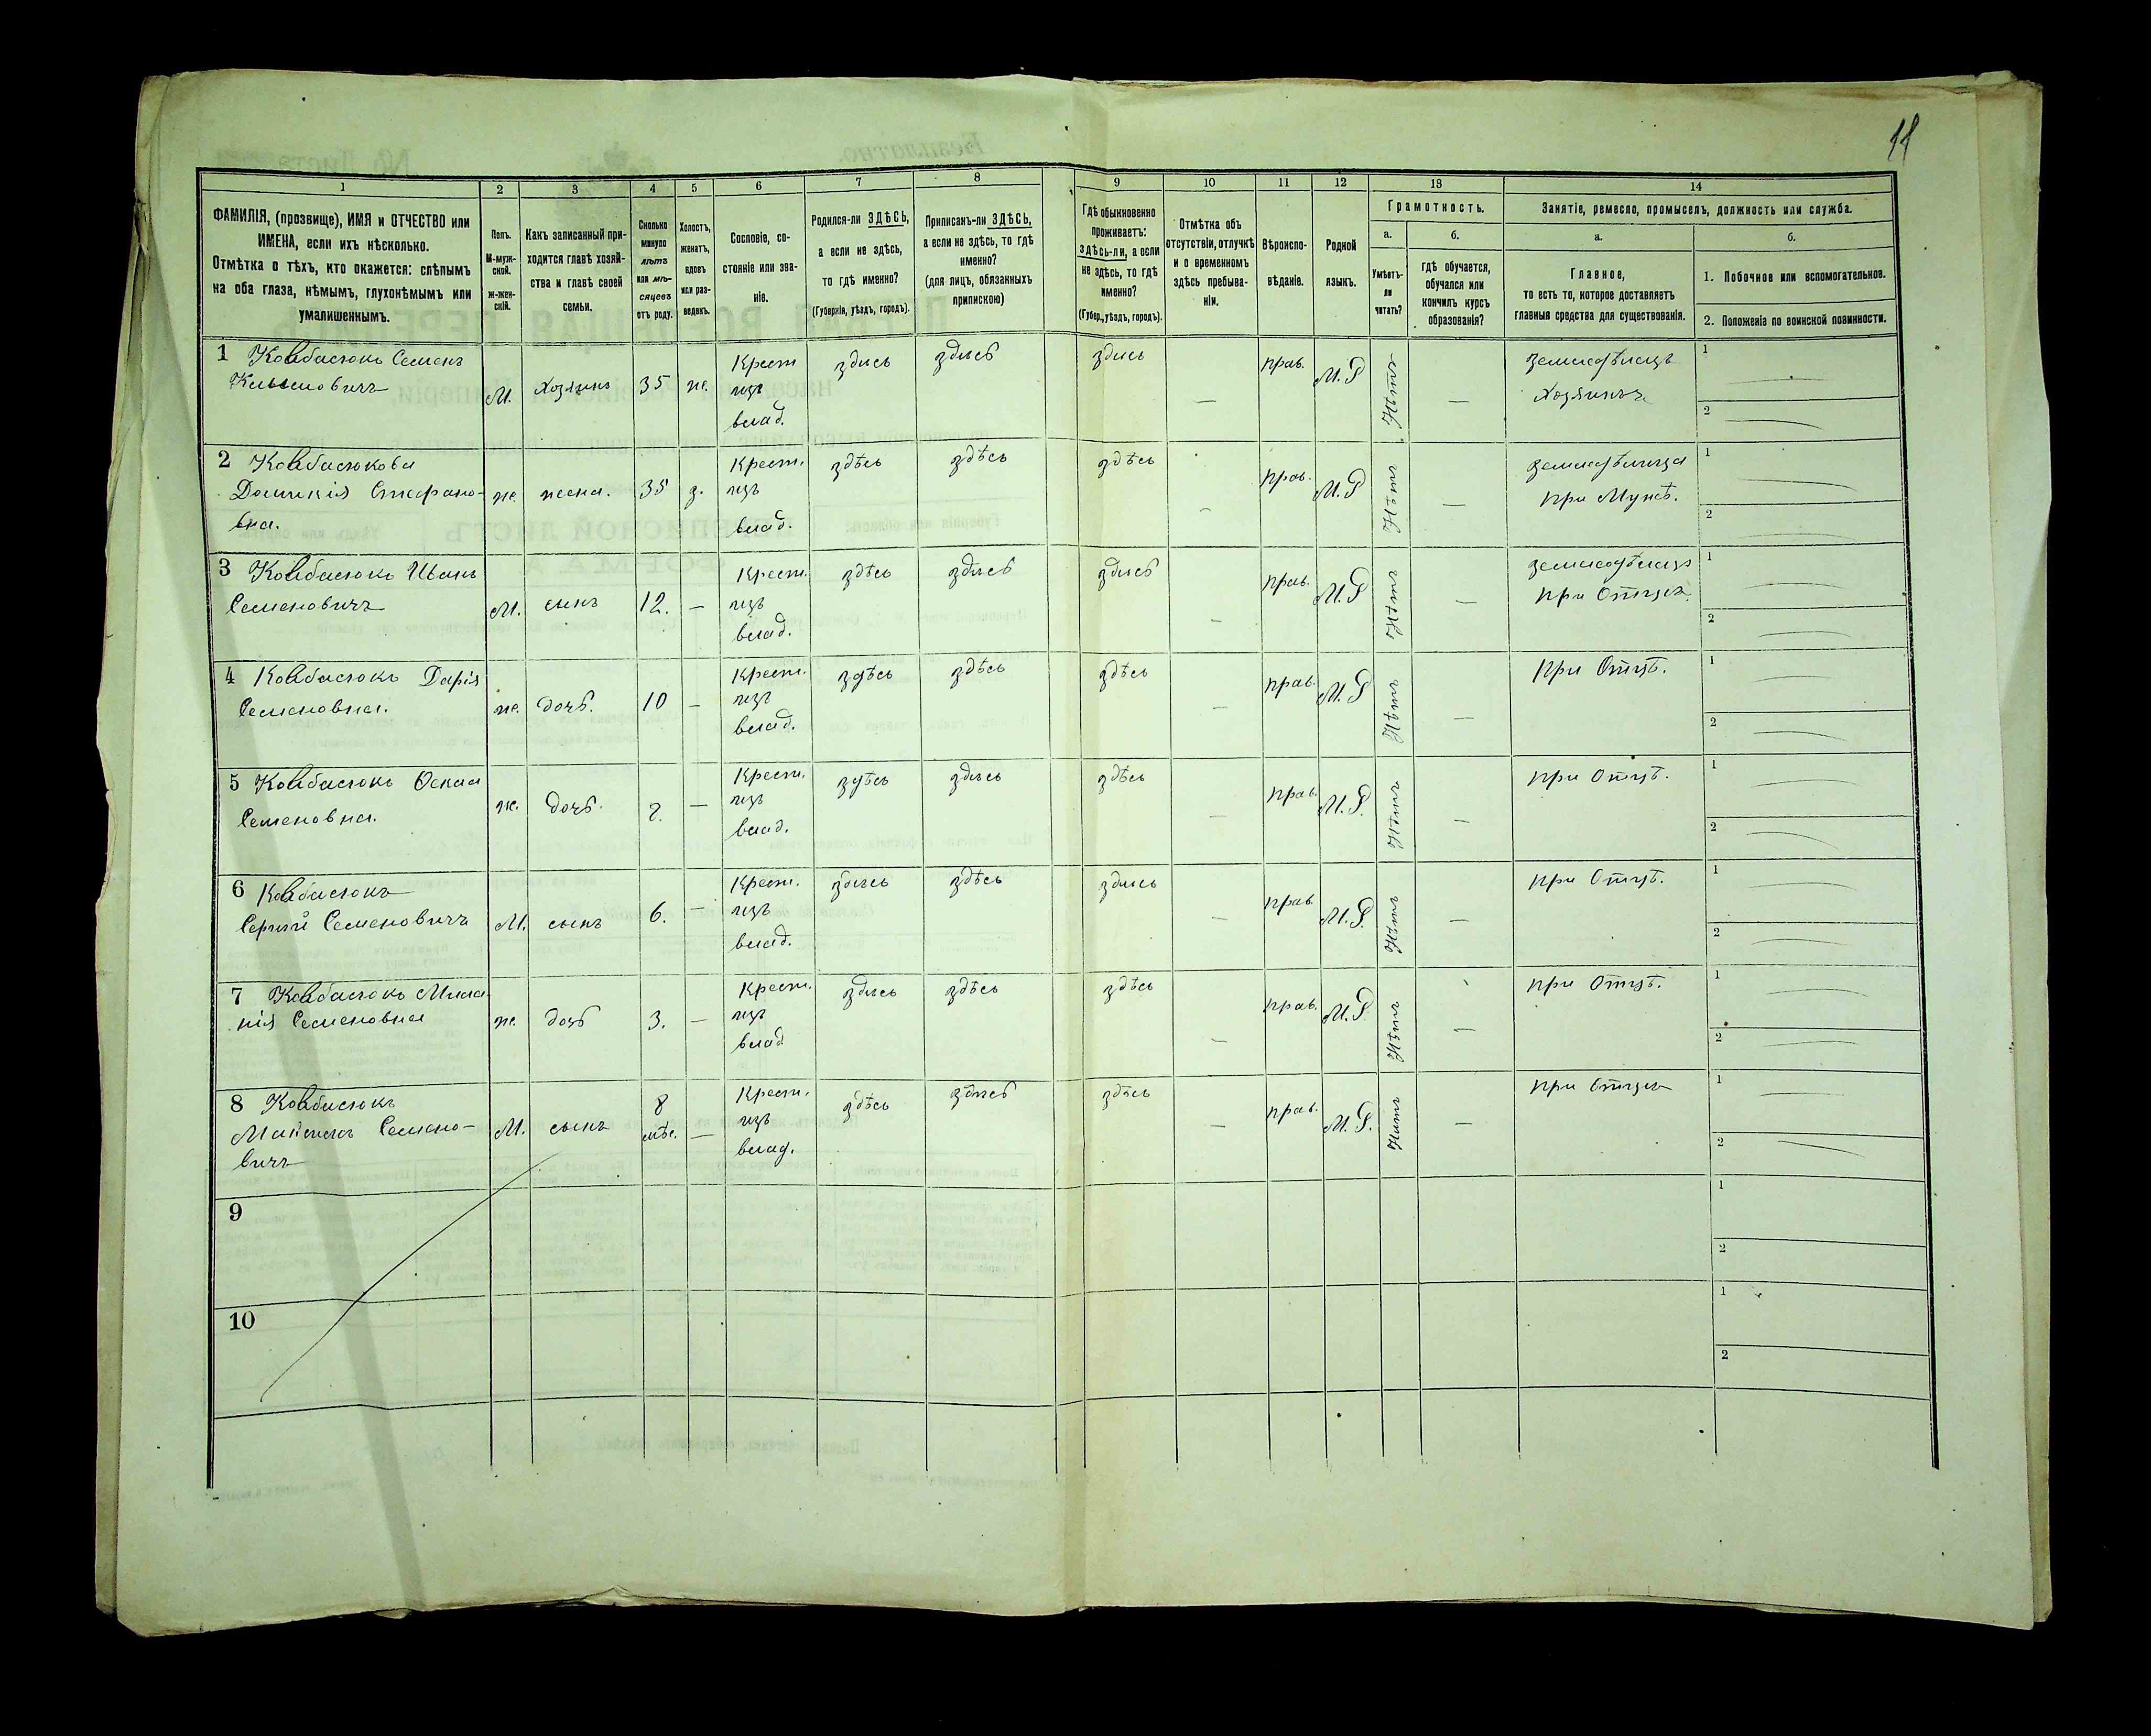 11
1 2 3 4 5 6 7 8 9 10 11 12 13 14
ФАМИЛІЯ, (прозвище), ИМЯ и ОТЧЕСТВО или
ИМЕНА, если ихъ нѣсколько.
Отмѣтка о тѣхъ, кто окажется: слѣпымъ
на оба глаза, нѣмымъ, глухонѣмымъ или
умалишеннымъ.
Полъ.
М-муж-
ской.
Ж-жен-
скій.
Какъ записанный при-
ходится главѣ хозяй-
ства и главѣ своей
семьи.
Сколько
минуло
лѣтъ
или мѣ-
сяцевъ
отъ роду.
Холостъ,
женатъ,
вдовъ
или раз-
веденъ.
Сословіе, со-
стояніе или зва-
ніе.
Родился-ли ЗДѢСЬ,
а если не здѣсь,
то гдѣ именно?
(Губернія, уѣздъ, городъ).
Приписанъ-ли ЗДѢСЬ,
а если не здѣсь, то гдѣ
именно?
(для лицъ, обязанныхъ
припискою)
Гдѣ обыкновенно
проживаетъ:
ЗДѢСЬ-ли, а если
не здѣсь, то гдѣ
именно?
(Губер., уѣздъ, городъ).
Отмѣтка объ
отсутствіи, отлучкѣ
и о временномъ
здѣсь пребыва-
ніи.
Вѣроиспо-
вѣданіе.
Родной
языкъ.
Грамотность.
а.
Умѣетъ-
ли
читать?
б.
гдѣ обучается,
обучался или
кончилъ курсъ
образованія?
Занятіе, ремесло, промыселъ, должность или служба.
а.
Главное,
то есть то, которое доставляетъ
главныя средства для существованія.
б.
1. Побочное или вспомогательное.
2. Положеніе по воинской повинности.
1 Ковбасюкъ Семенъ
М. Хозяинъ 35 ж.
Крест
изъ
влад.
здись здись здись — прав. М.Р Нѣтъ —
земледѣлецъ
Хозяинъ
1
2
2 Ковбасюкова
Домникія Стефано-
вна.
же. жена. 35 з.
Крест.
изъ
влад.
здѣсь здѣсь здѣсь — прав. М.Р Нѣтъ —
земледѣлица
при Мужѣ.
1
2
3 Ковбасюкъ Иванъ
Семеновичъ
М. сынъ 12. —
Крест.
изъ
влад.
здѣсь здись здись — прав. М.Р Нѣтъ —
земледѣлецъ
при Отцѣ.
1
2
4 Ковбасюкъ Дарія
Семеновна.
же. дочь. 10 —
Крест.
изъ
влад.
здѣсь здѣсь здѣсь — прав. М.Р Нѣтъ —
при Отцѣ.
1
2
5 Ковбасюкъ
Семеновна.
же. дочь. —
Крест.
изъ
влад.
здѣсь здись здѣсь — прав. М.Р. Нѣтъ —
при Отцѣ.
1
2
6 Ковбасюкъ
Сергій Семеновичъ
М. сынъ 6. —
Крест.
изъ
влад.
здись здѣсь здись — прав М.Р. Нѣтъ —
при Отцѣ.
1
2
7 Ковбасюкъ Мила-
нія Семеновна
же. дочь 3. —
Крест.
изъ
влад
здись здѣсь здѣсь — прав. М.Р. Нѣтъ —
при Отцѣ.
1
2
8 Ковбасюкъ
Семено-
вичъ
М. сынъ 8
мѣс. —
Крест.
изъ
влад.
здѣсь здись здѣсь — прав. М.Р. Нитъ —
при Отцѣ
1
2
9
1
2
10
1
2